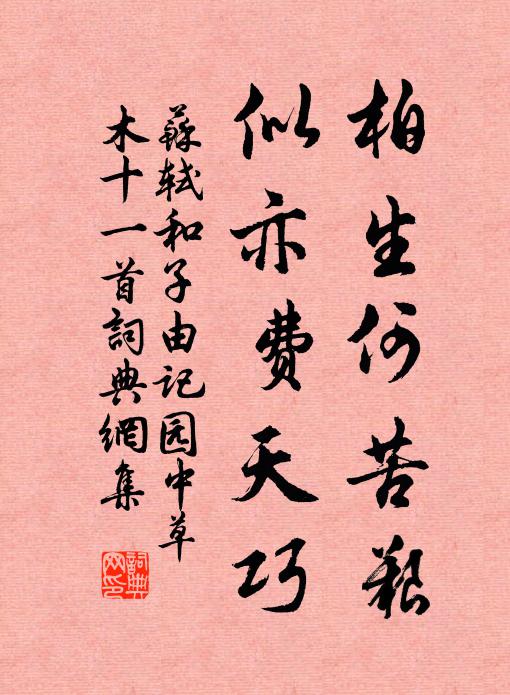 柏生何苦艱
似亦費天巧
蘇軾和子由记园中草
木十一首詞典網集
詞典
网印